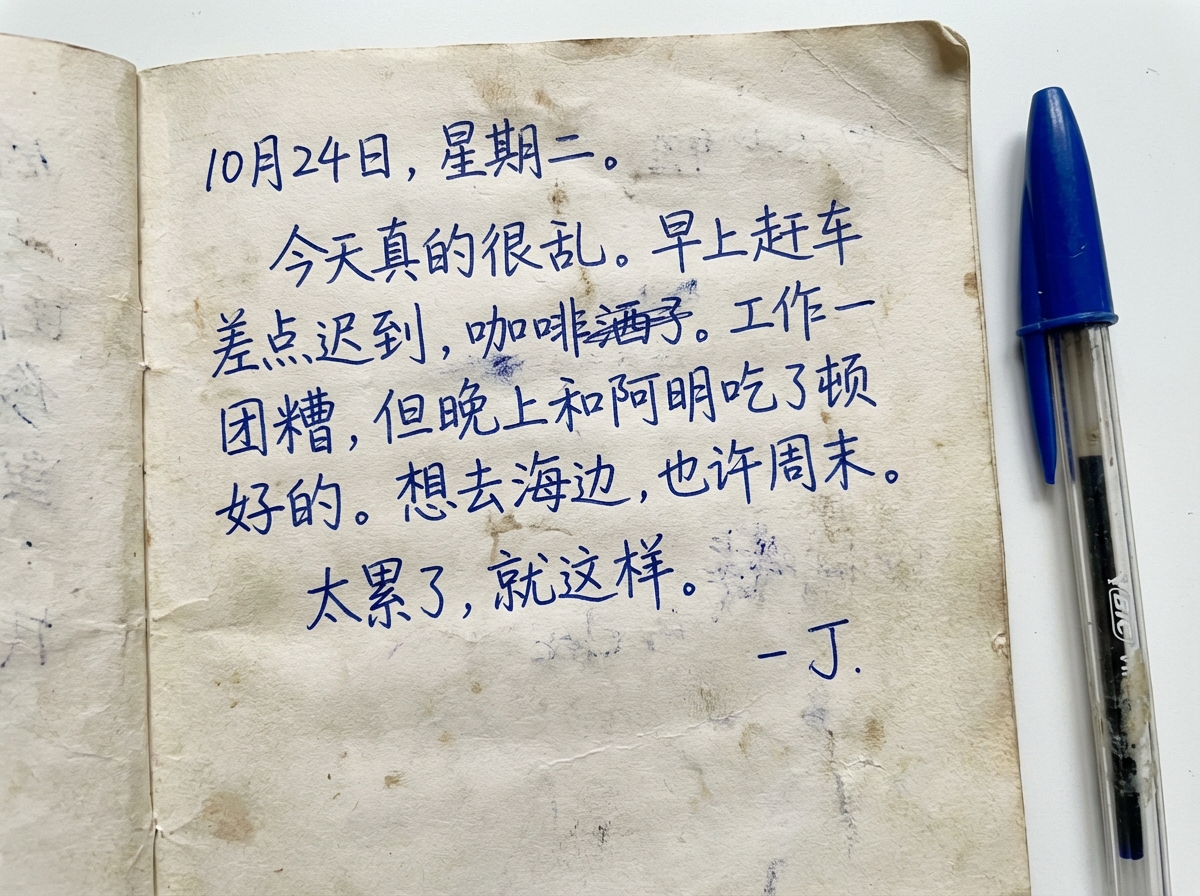 10月24日，星期二。
今天真的很乱。早上赶车
差点迟到，咖啡洒了。工作一
团糟，但晚上和阿明吃了顿
好的。想去海边，也许周末。
太累了，就这样。
- J.
BIC